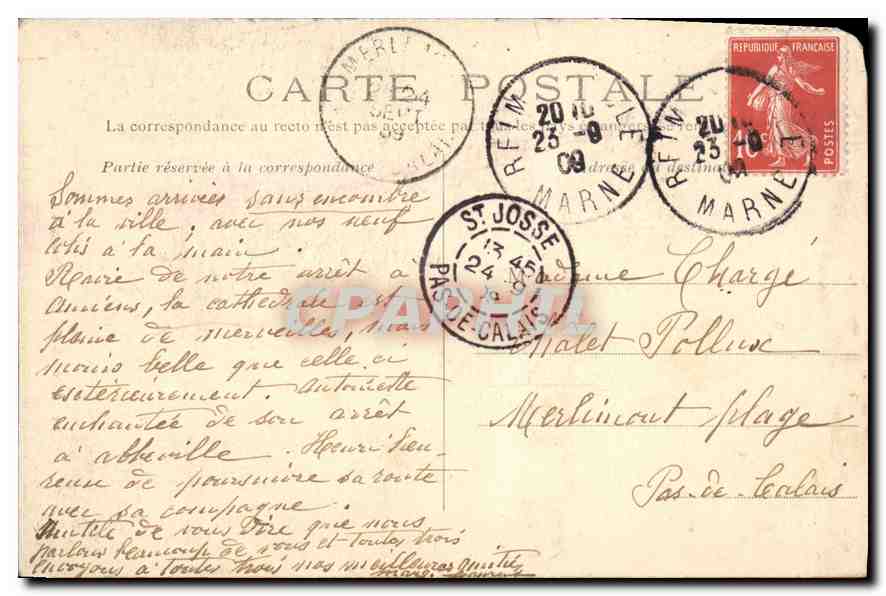 CARTE POSTALE
La correspondance au recto n'est pas acceptée par tous les
Partie réservée à la correspondance
adresse du destinat
MERL
24
SEPT
09
CALAIS
REIM
20
23 -9
09
MARNE
REIM
20
23 -9
09
MARNE
REPUBLIQUE FRANÇAISE
10c
POSTES
ST JOSSE
13 45
24
PAS-DE-CALAIS
Sommes arrivées sans encombre
à la ville, avec nos neuf
colis à la main.
Ravie de notre arrêt à
Amiens, la cathédrale est
pleine de merveilles, mais
moins belle que celle ci
extérieurement. Antoinette
enchantée de son arrêt
à Abbeville. Henri heu-
reuse de poursuivre sa route
avec sa compagne.
de vous dire que nous
parlons beaucoup de vous et toutes trois
envoyons à toutes trois nos meilleures amitiés
Madame Chargé
Chalet Pollux
Merlimont plage
Pas-de-Calais
CPARAMA